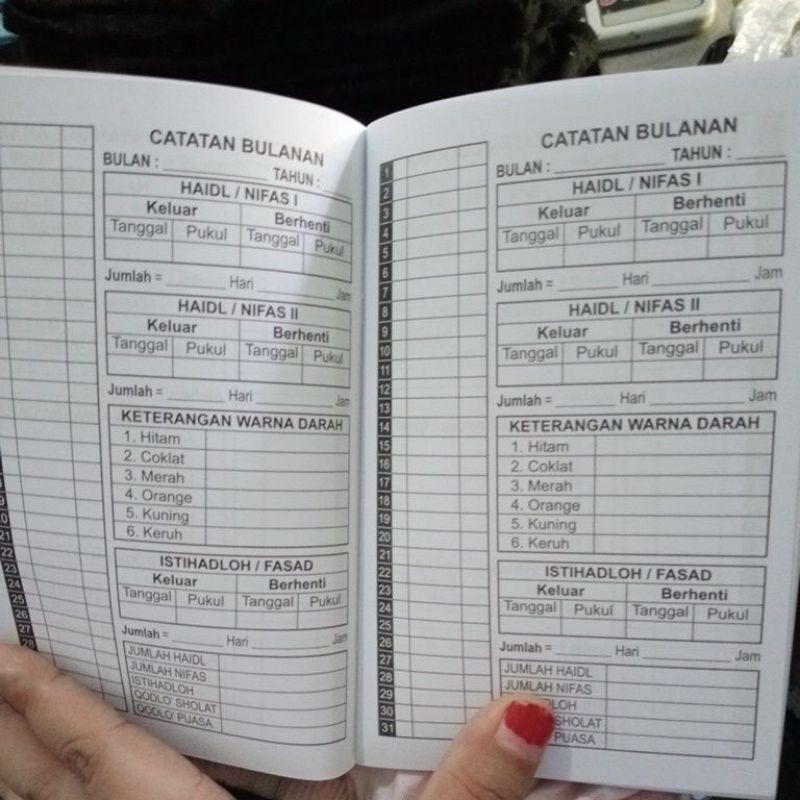 CATATAN BULANAN
BULAN : ________ TAHUN : ____
HAIDL / NIFAS I
Keluar Berhenti
Tanggal Pukul Tanggal Pukul
Jumlah = ________ Hari ________ Jam
HAIDL / NIFAS II
Keluar Berhenti
Tanggal Pukul Tanggal Pukul
Jumlah = ________ Hari ________ Jam
KETERANGAN WARNA DARAH
1. Hitam
2. Coklat
3. Merah
4. Orange
5. Kuning
6. Keruh
ISTIHADLOH / FASAD
Keluar Berhenti
Tanggal Pukul Tanggal Pukul
Jumlah = ________ Hari ________ Jam
JUMLAH HAIDL
JUMLAH NIFAS
ISTIHADLOH
QODLO' SHOLAT
QODLO' PUASA
21
22
23
24
25
26
27
28
CATATAN BULANAN
BULAN : ________ TAHUN : ____
1
2
3
4
5
6
7
8
9
10
11
12
13
14
15
16
17
18
19
20
21
22
23
24
25
26
27
28
29
30
31
HAIDL / NIFAS I
Keluar Berhenti
Tanggal Pukul Tanggal Pukul
Jumlah = ________ Hari ________ Jam
HAIDL / NIFAS II
Keluar Berhenti
Tanggal Pukul Tanggal Pukul
Jumlah = ________ Hari ________ Jam
KETERANGAN WARNA DARAH
1. Hitam
2. Coklat
3. Merah
4. Orange
5. Kuning
6. Keruh
ISTIHADLOH / FASAD
Keluar Berhenti
Tanggal Pukul Tanggal Pukul
Jumlah = ________ Hari ________ Jam
JUMLAH HAIDL
JUMLAH NIFAS
DLOH
SHOLAT
PUASA